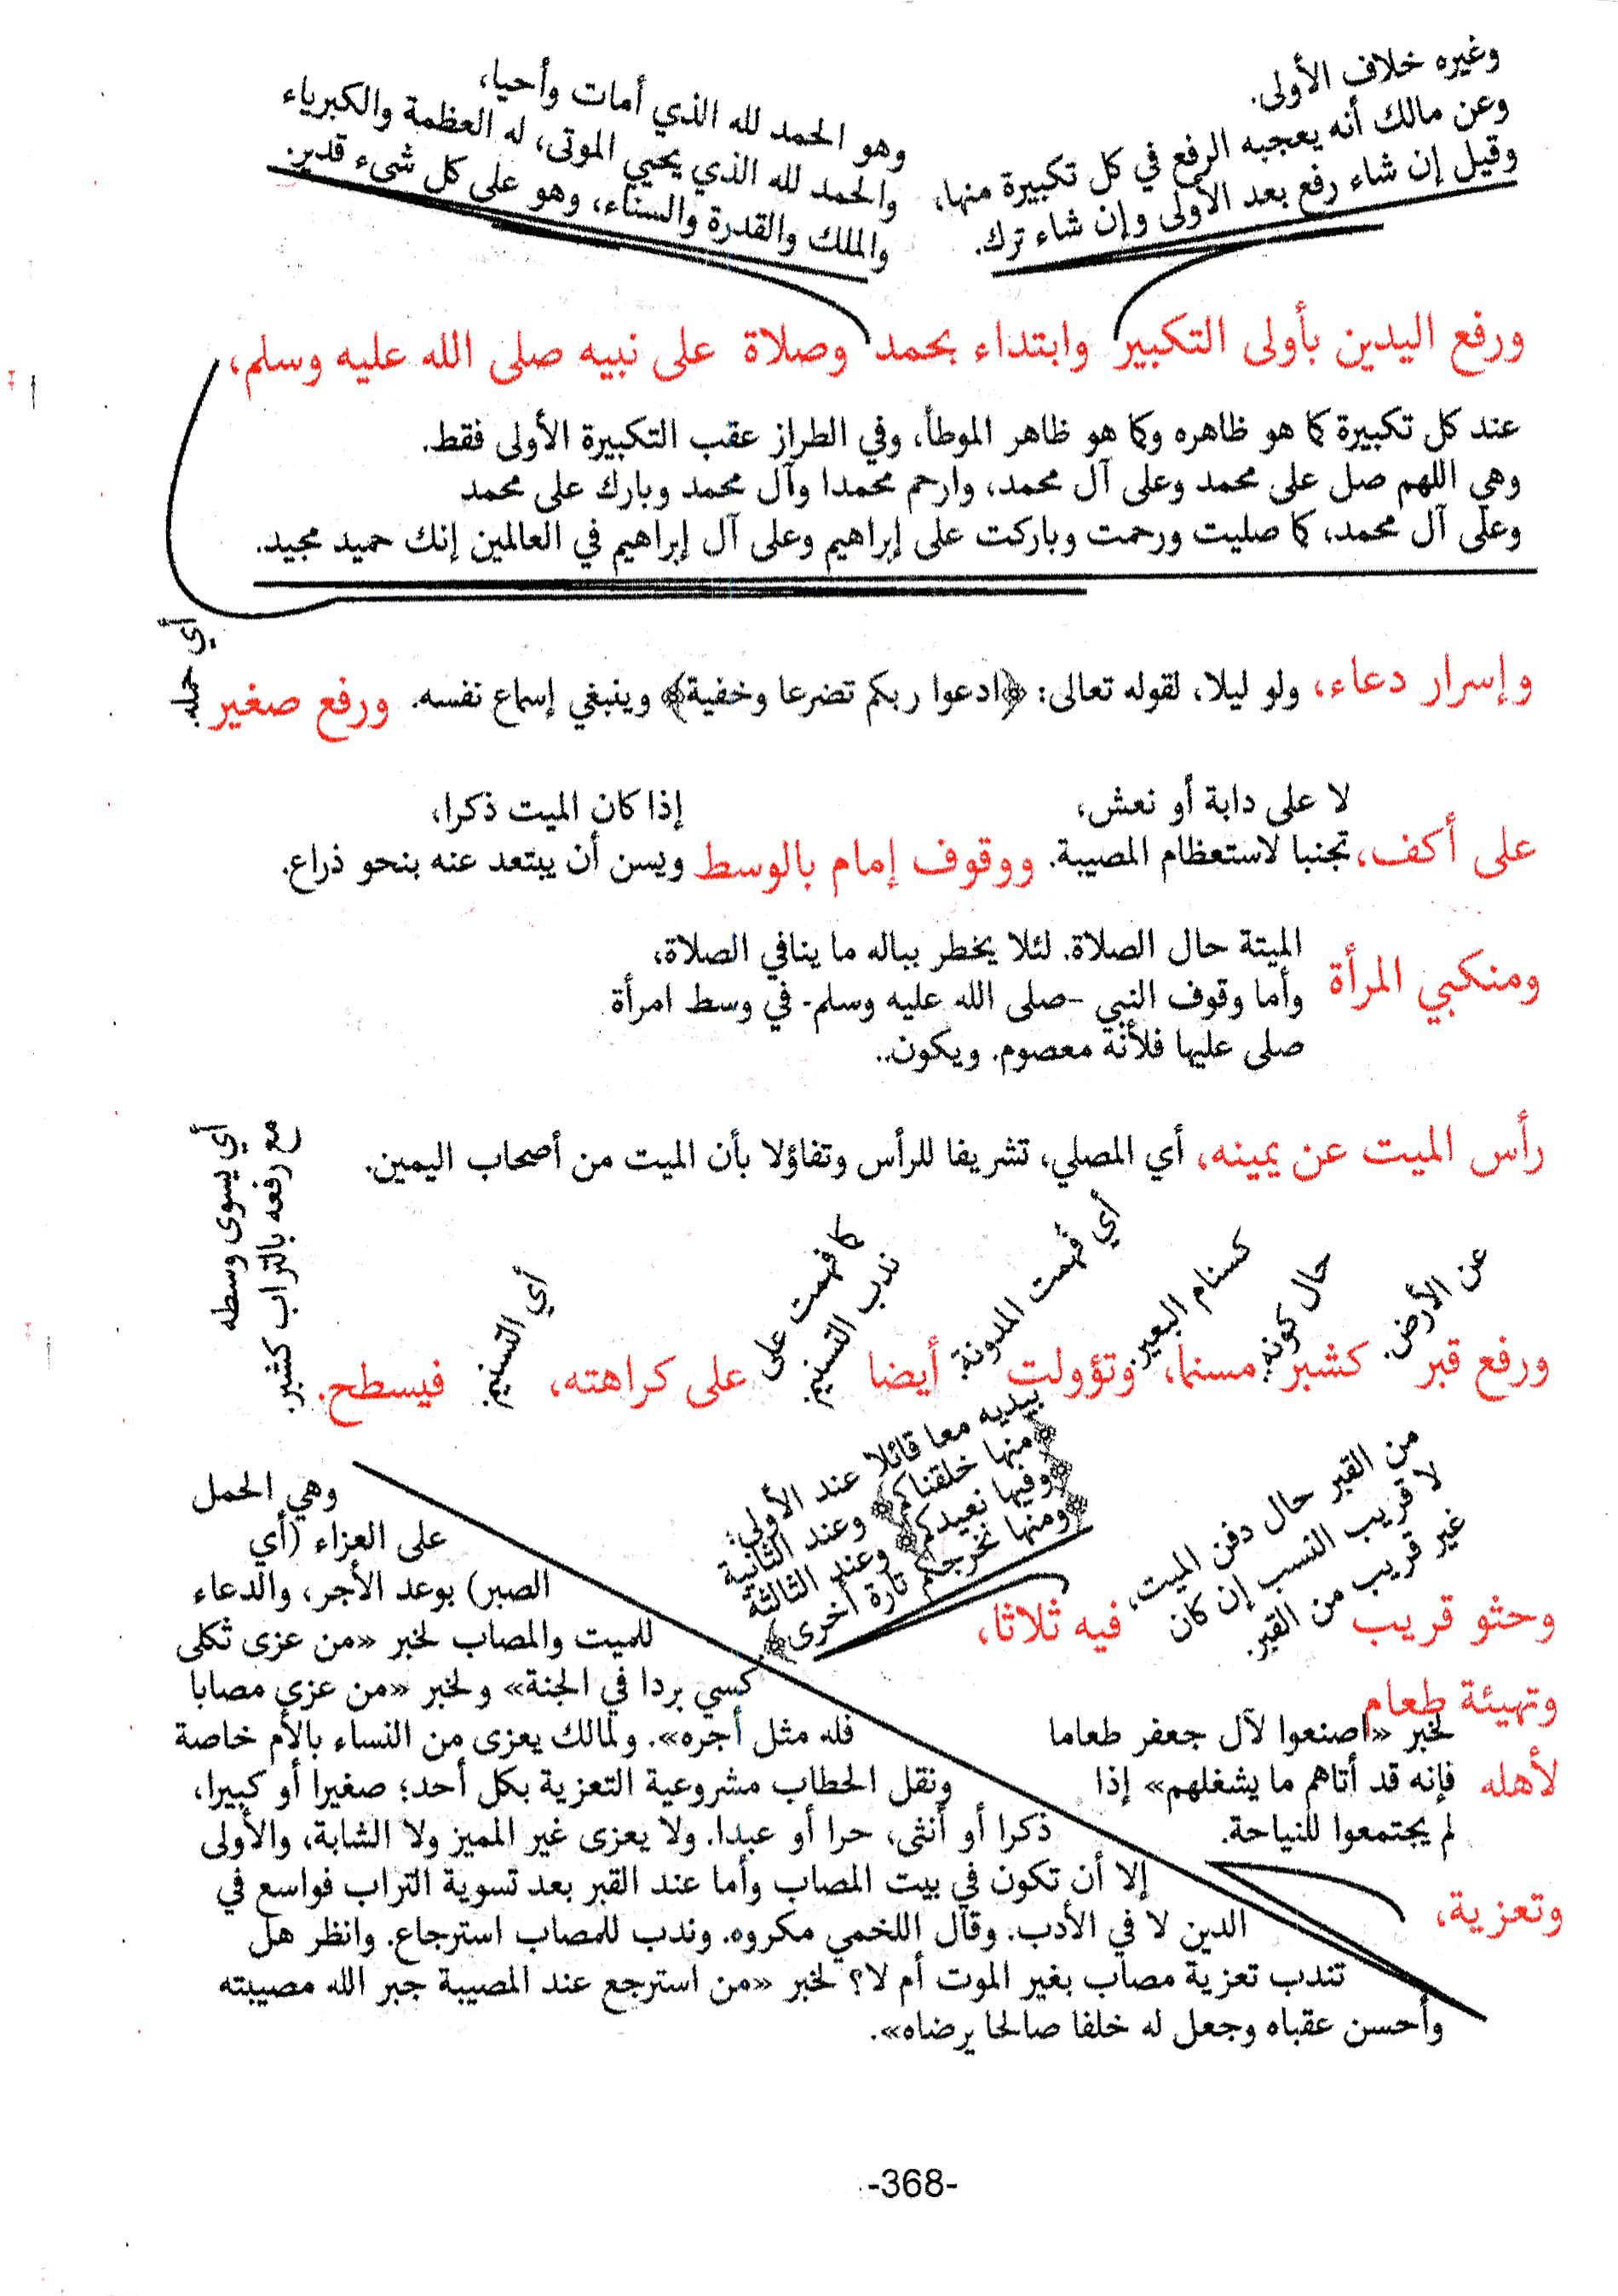 وغيره خلاف الأولى.
وعن مالك أنه يعجبه الرفع في كل تكبيرة منها،
وقيل إن شاء رفع بعد الأولى وإن شاء ترك.
وهو الحمد لله الذي أمات وأحيا،
والحمد لله الذي يحيي الموتى، له العظمة والكبرياء
والملك والقدرة والسناء، وهو على كل شيء قدير.
ورفع اليدين بأولى التكبير وابتداء بحمد وصلاة على نبيه صلى الله عليه وسلم،
عند كل تكبيرة كما هو ظاهره وكما هو ظاهر الموطأ، وفي الطراز عقب التكبيرة الأولى فقط.
وهي اللهم صل على محمد وعلى آل محمد، وارحم محمدا وآل محمد وبارك على محمد
وعلى آل محمد، كما صليت ورحمت وباركت على إبراهيم وعلى آل إبراهيم في العالمين إنك حميد مجيد.
وإسرار دعاء، ولو ليلا، لقوله تعالى: ﴿ادعوا ربكم تضرعا وخفية﴾ وينبغي إسماع نفسه. ورفع صغير
أي حمله.
لا على دابة أو نعش،
إذا كان الميت ذكرا،
على أكف، تجنبا لاستعظام المصيبة. ووقوف إمام بالوسط ويسن أن يبتعد عنه بنحو ذراع.
الميتة حال الصلاة. لئلا يخطر بباله ما ينافي الصلاة،
ومنكبي المرأة وأما وقوف النبي -صلى الله عليه وسلم- في وسط امرأة
صلى عليها فلأنه معصوم. ويكون..
رأس الميت عن يمينه، أي المصلي، تشريفا للرأس وتفاؤلا بأن الميت من أصحاب اليمين.
عن الأرض.
حال كونه
كسنام البعير.
أي فهمت المدونة
كما فهمت على
ندب التسنيم
أي التسنيم
أي يسوى وسطه
مع رفعه بالتراب كشبر.
ورفع قبر كشبر مسنما، وتؤولت أيضا على كراهته، فيسطح.
من القبر حال دفن الميت،
لا قريب النسب إن كان
غير قريب من القبر.
بيديه معا قائلا عند الأولى:
﴿منها خلقناكم﴾ وعند الثانية
﴿وفيها نعيدكم﴾ وعند الثالثة
﴿ومنها نخرجكم تارة أخرى﴾.
وحثو قريب فيه ثلاثا،
وتهيئة طعام
لخبر «اصنعوا لآل جعفر طعاما
لأهله فإنه قد أتاهم ما يشغلهم» إذا
لم يجتمعوا للنياحة.
وتعزية،
وهي الحمل
على العزاء (أي
الصبر) بوعد الأجر، والدعاء
للميت والمصاب لخبر «من عزى ثكلى
كسي بردا في الجنة» ولخبر «من عزى مصابا
فله مثل أجره». ولمالك يعزى من النساء بالأم خاصة
ونقل الحطاب مشروعية التعزية بكل أحد؛ صغيرا أو كبيرا،
ذكرا أو أنثى، حرا أو عبدا. ولا يعزى غير المميز ولا الشابة، والأولى
إلا أن تكون في بيت المصاب وأما عند القبر بعد تسوية التراب فواسع في
الدين لا في الأدب. وقال اللخمي مكروه. وندب للمصاب استرجاع. وانظر هل
تندب تعزية مصاب بغير الموت أم لا؟ لخبر «من استرجع عند المصيبة جبر الله مصيبته
وأحسن عقباه وجعل له خلفا صالحا يرضاه».
-368-